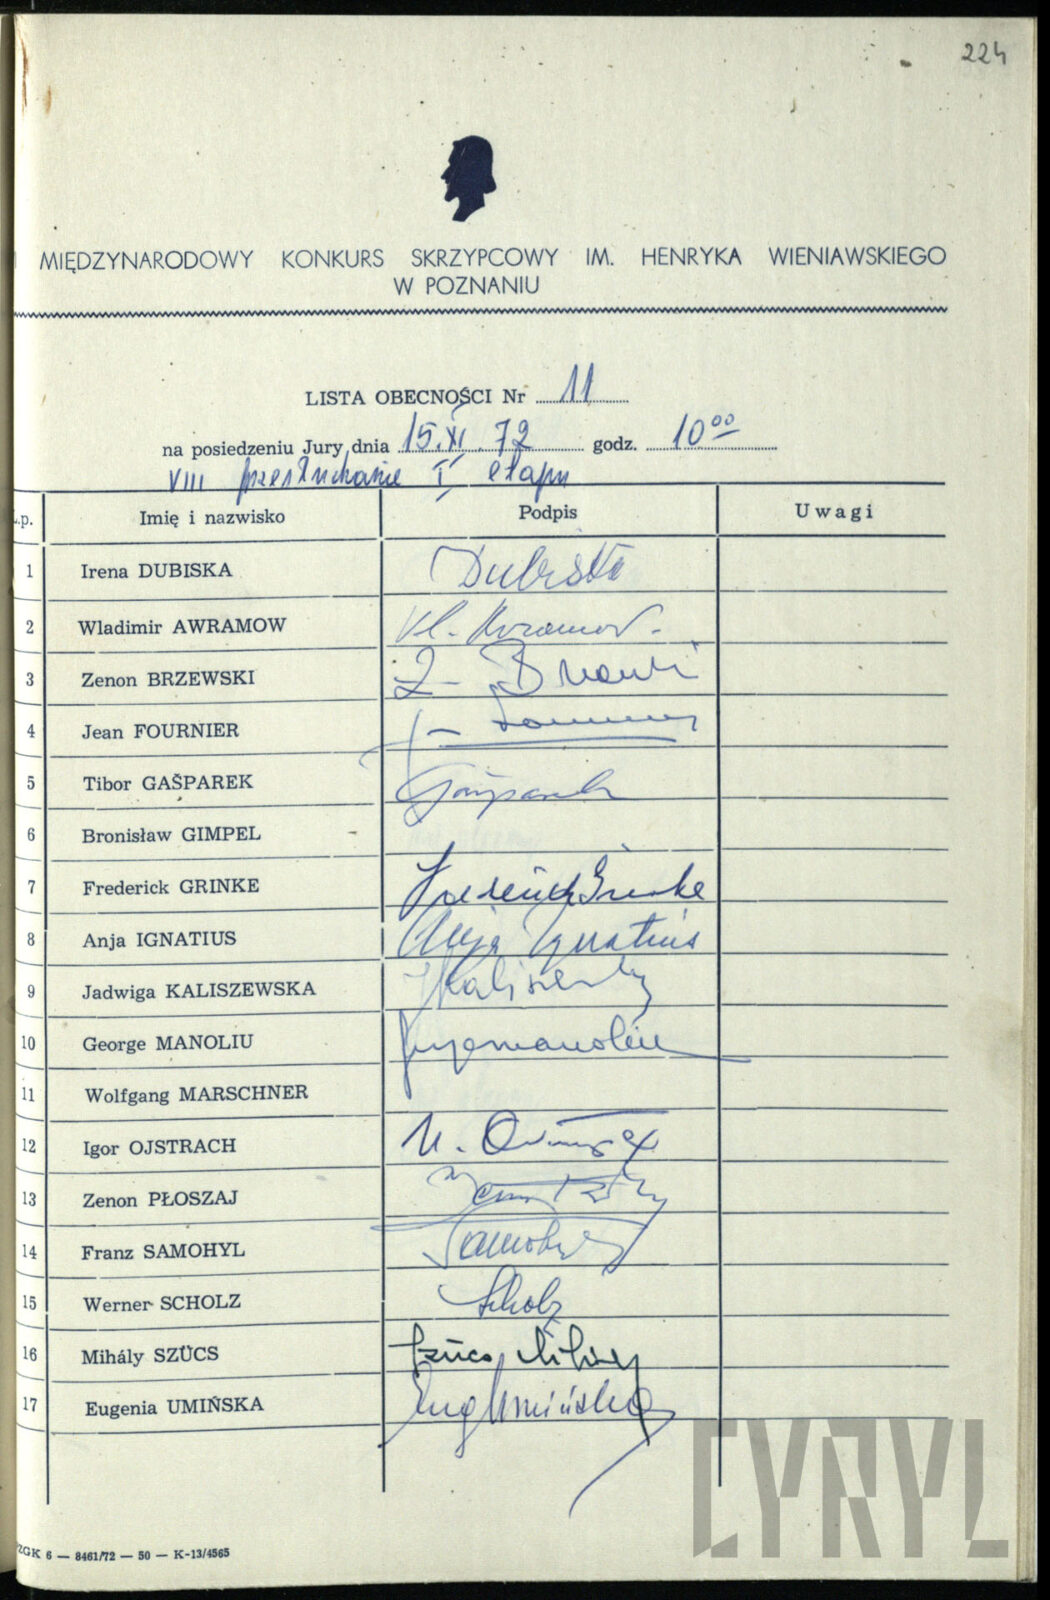 224
MIĘDZYNARODOWY KONKURS SKRZYPCOWY IM. HENRYKA WIENIAWSKIEGO
W POZNANIU
LISTA OBECNOŚCI Nr 11
na posiedzeniu Jury dnia 15.XI.72 godz. 10 00
VIII przesłuchanie I etapu
L.p. Imię i nazwisko Podpis Uwagi
1 Irena DUBISKA Dubiska
2 Wladimir AWRAMOW Vl. Avramov.
3 Zenon BRZEWSKI Z.
4 Jean FOURNIER J.
5 Tibor GAŠPAREK Gašparek
6 Bronisław GIMPEL
7 Frederick GRINKE Frederick Grinke
8 Anja IGNATIUS Anja Ignatius
9 Jadwiga KALISZEWSKA JKaliszewska
10 George MANOLIU
11 Wolfgang MARSCHNER
12 Igor OJSTRACH И.
13 Zenon PŁOSZAJ
14 Franz SAMOHYL Samohyl
15 Werner SCHOLZ Scholz
16 Mihály SZÜCS Szücs Mihály
17 Eugenia UMIŃSKA EugUmińska
ZGK 6 — 8461/72 — 50 — K-13/4565
CYRYL